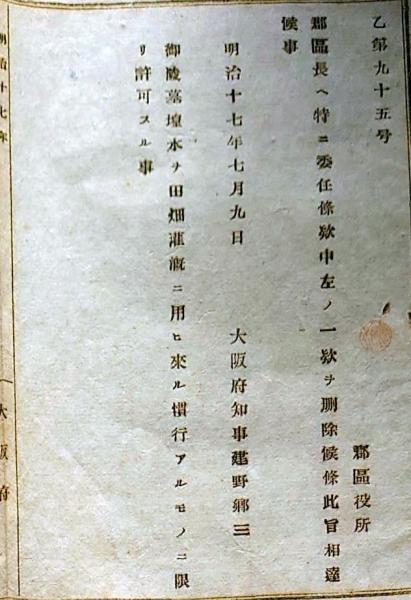 乙第九十五号
郡區役所
郡區長ヘ特ニ委任條欵中左ノ一欵ヲ删除候條此旨相達
候事
明治十七年七月九日
大阪府知事建野郷三
御陵墓堭水ヲ田畑灌漑ニ用ヒ來ル慣行アルモノニ限
リ許可スル事
明治十七年
大阪府